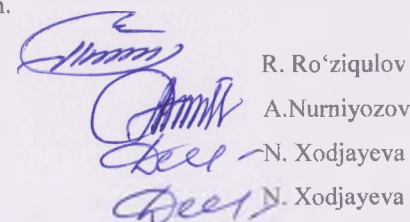 n.
R. Ro‘ziqulov
A.Nurniyozov
N. Xodjayeva
N. Xodjayeva